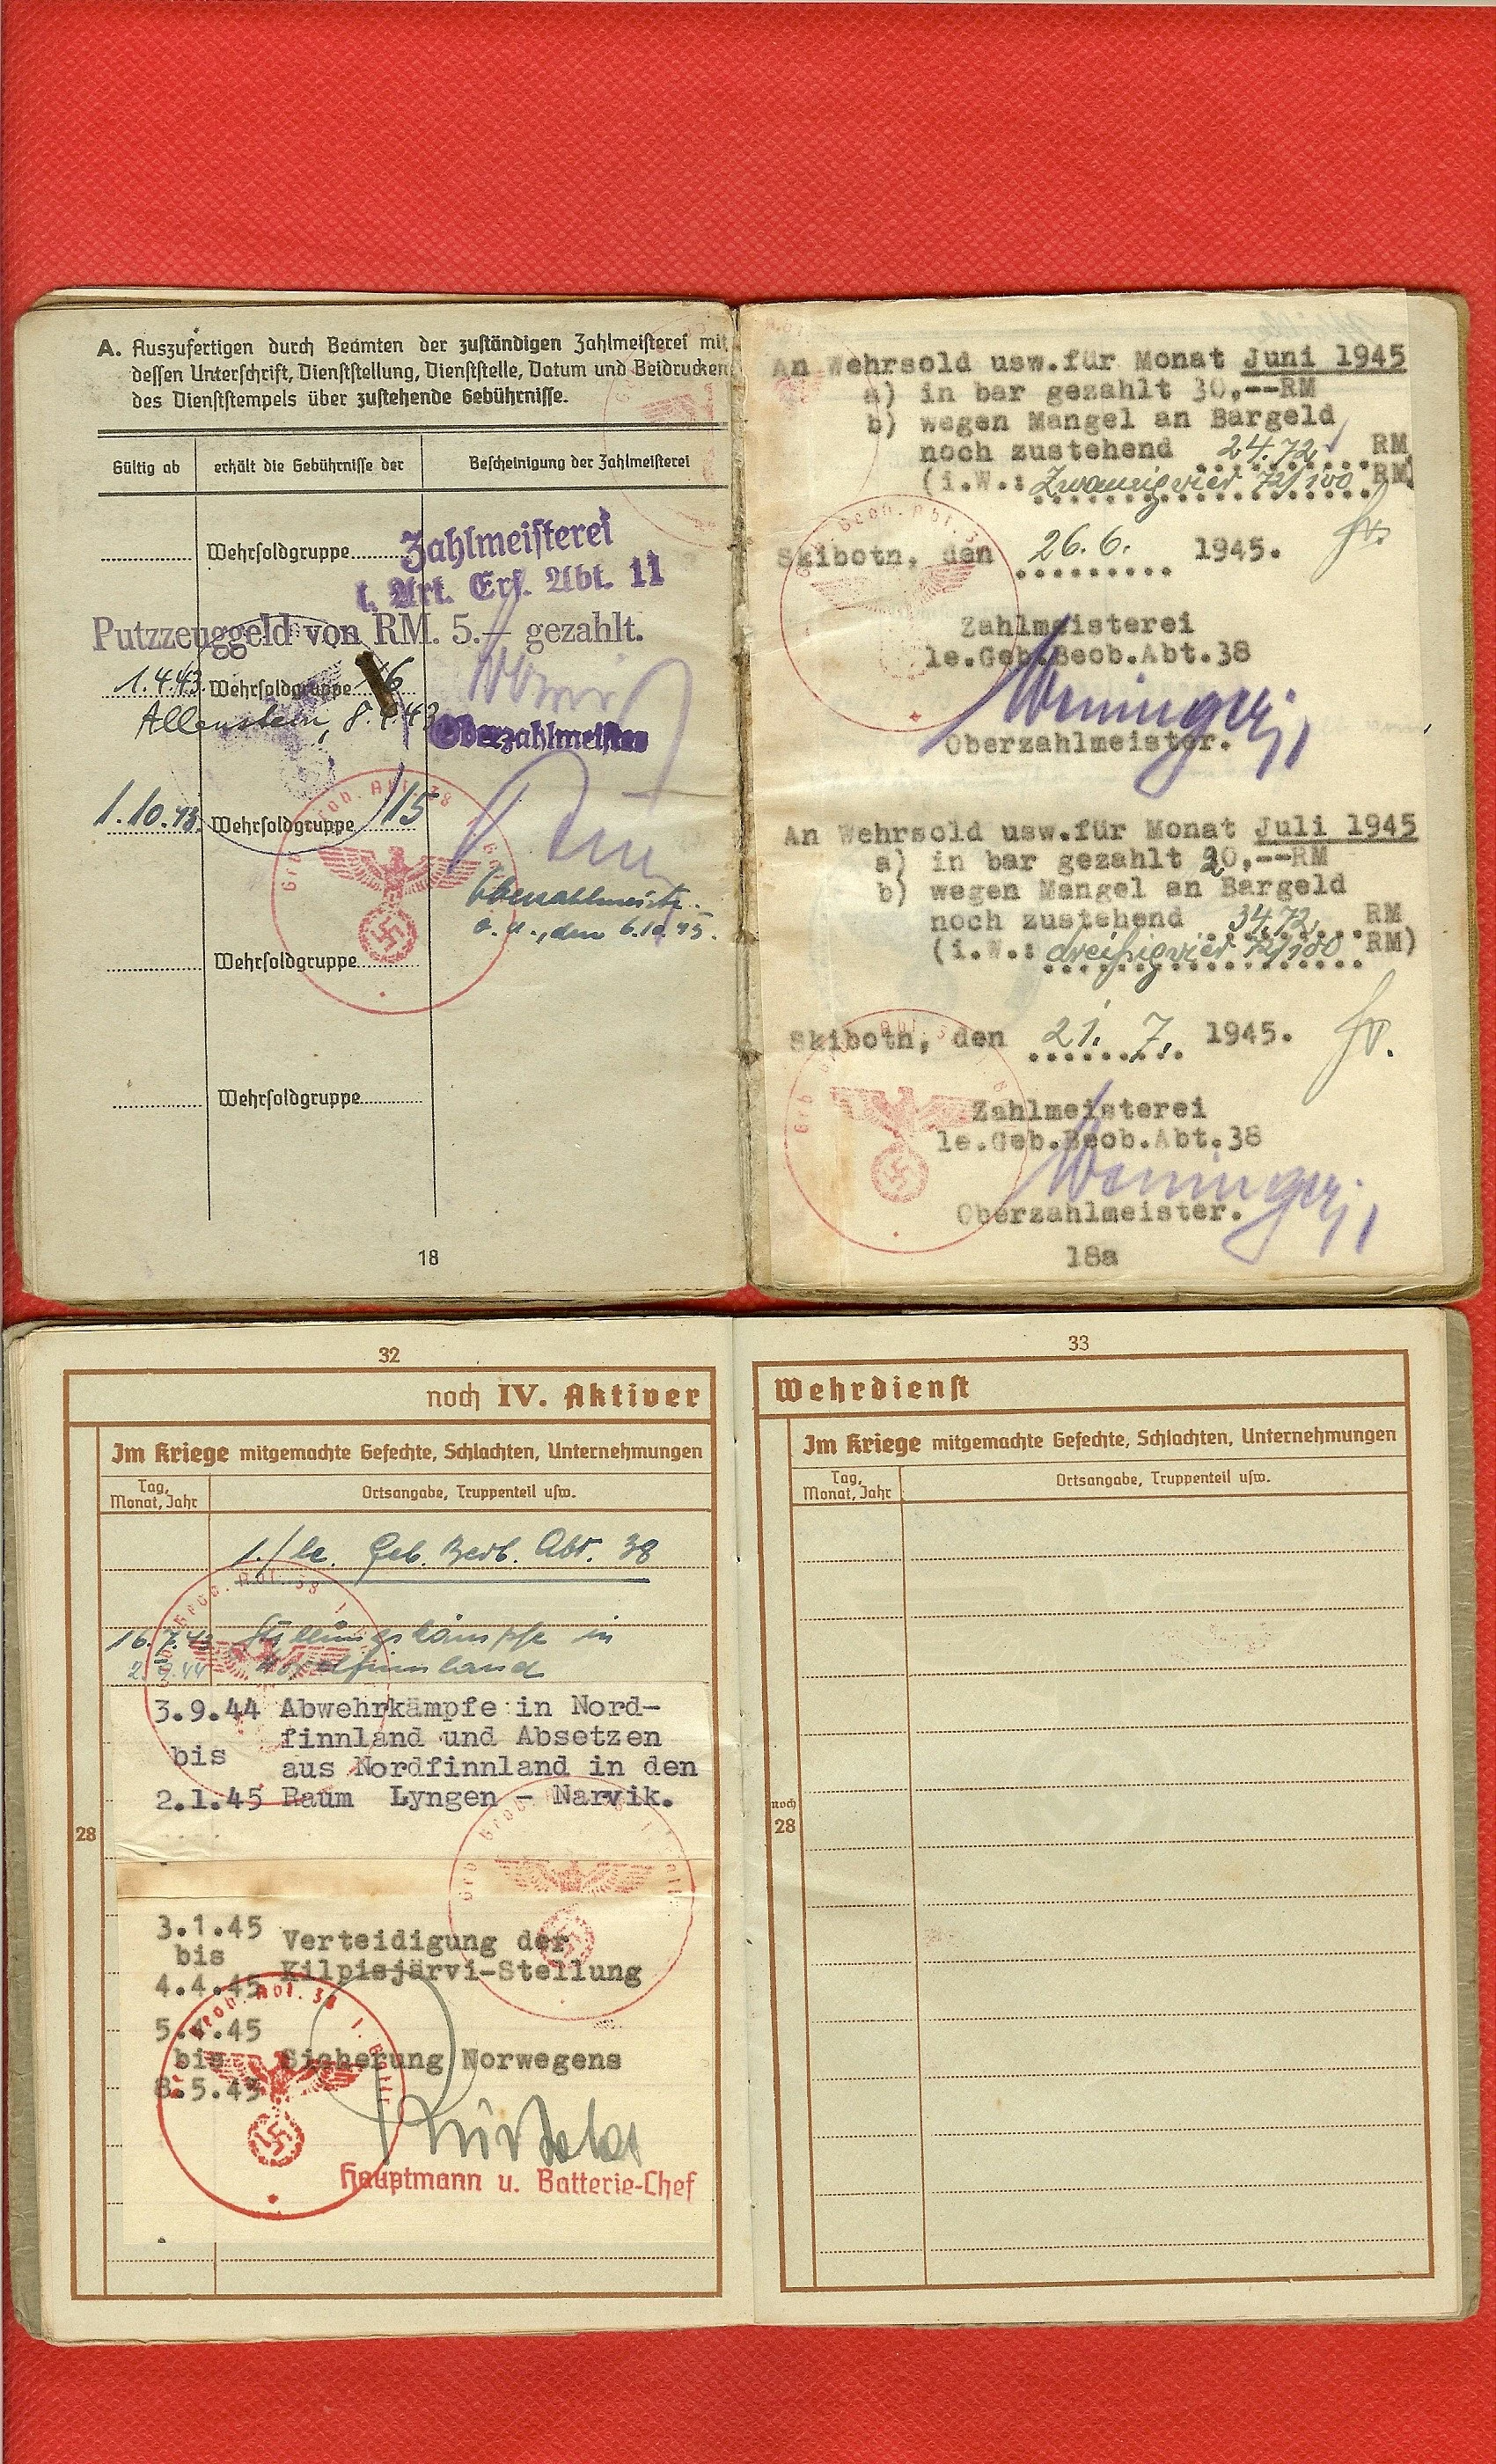 A. Auszufertigen durch Beamten der zuständigen Zahlmeisterei mit
dessen Unterschrift, Dienststellung, Dienststelle, Datum und Beidrucken
des Dienststempels über zustehende Gebührnisse.
Gültig ab
erhält die Gebührnisse der
Bescheinigung der Zahlmeisterei
Wehrsoldgruppe
Zahlmeisterei
l. Art. Ers. Abt. 11
Putzzeuggeld von RM. 5.— gezahlt.
1.4.43. Wehrsoldgruppe 16
Allenstein, 8.4.43
Oberzahlmeister
1.10.43. Wehrsoldgruppe 15
Oberzahlmeister
Wehrsoldgruppe
Wehrsoldgruppe
18
An Wehrsold usw.für Monat Juni 1945
a) in bar gezahlt 30,--RM
b) wegen Mangel an Bargeld
noch zustehend 24.72 RM
(i.W.: Zwanzigvier 72/100 RM)
Skibotn, den 26.6. 1945.
Zahlmeisterei
le.Geb.Beob.Abt.38
Weninger
Oberzahlmeister.
An Wehrsold usw.für Monat Juli 1945
a) in bar gezahlt 20,--RM
b) wegen Mangel an Bargeld
noch zustehend 34.72 RM
(i.W.: dreißigvier 72/100 RM)
Skibotn, den 21. 7. 1945.
Zahlmeisterei
le.Geb.Beob.Abt.38
Weninger
Oberzahlmeister.
18a
32
noch IV. Aktiver
Im Kriege mitgemachte Gefechte, Schlachten, Unternehmungen
Tag,
Monat, Jahr
Ortsangabe, Truppenteil usw.
1./le. Geb. Beob. Abt. 38
16.7.43 Stellungskämpfe in
2.9.44 Nordfinnland
3.9.44 Abwehrkämpfe in Nord-
finnland und Absetzen
bis aus Nordfinnland in den
2.1.45 Raum Lyngen - Narvik.
28
3.1.45 Verteidigung der
bis Kilpisjärvi-Stellung
4.4.45
5.4.45
bis Sicherung Norwegens
8.5.45
Hauptmann u. Batterie-Chef
33
Wehrdienst
Im Kriege mitgemachte Gefechte, Schlachten, Unternehmungen
Tag,
Monat, Jahr
Ortsangabe, Truppenteil usw.
noch
28